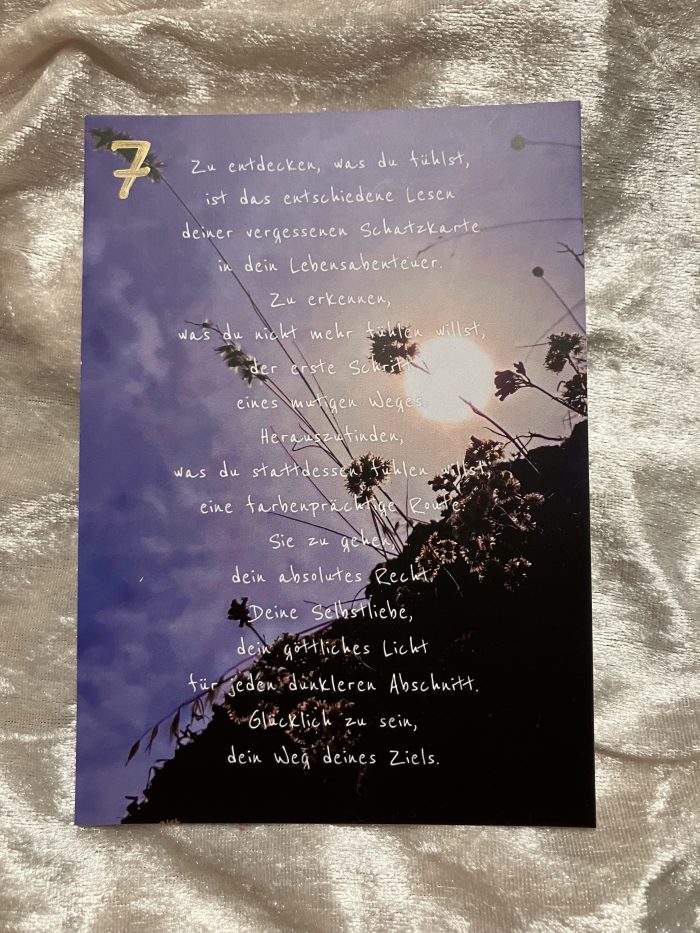 7
Zu entdecken, was du fühlst,
ist das entschiedene Lesen
deiner vergessenen Schatzkarte
in dein Lebensabenteuer.
Zu erkennen,
was du nicht mehr fühlen willst,
der erste Schritt
eines mutigen Weges.
Herauszufinden,
was du stattdessen fühlen willst,
eine farbenprächtige Route.
Sie zu gehen,
dein absolutes Recht.
Deine Selbstliebe,
dein göttliches Licht
für jeden dunkleren Abschnitt.
Glücklich zu sein,
dein Weg deines Ziels.